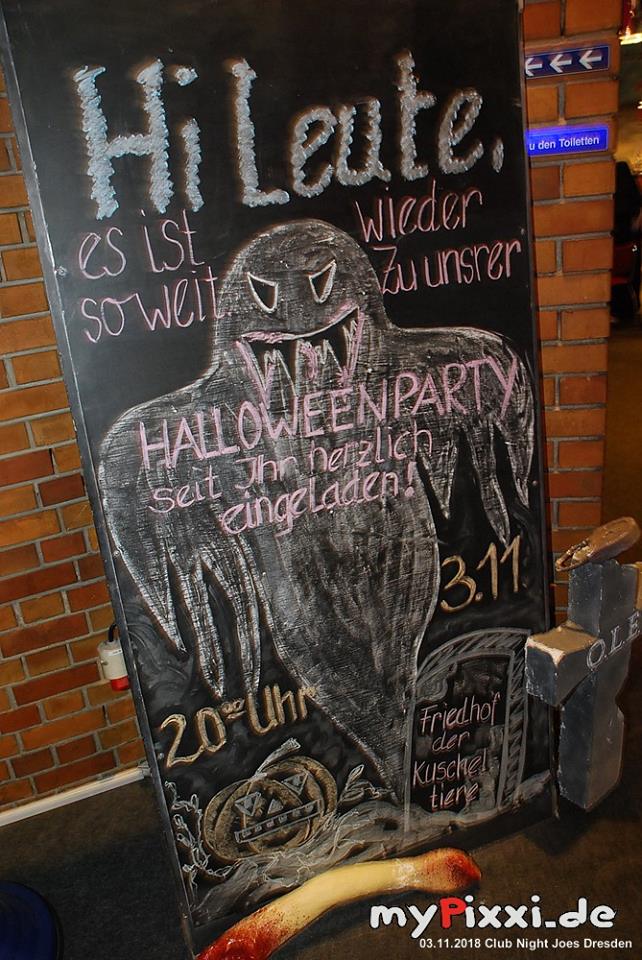 Hi Leute,
es ist wieder
soweit zu unsrer
HALLOWEENPARTY
seit Ihr herzlich
eingeladen!
3.11
20⁰⁰ Uhr
Friedhof
der
Kuschel
tiere
u den Toiletten
O.L.F
myPixxi.de
03.11.2018 Club Night Joes Dresden